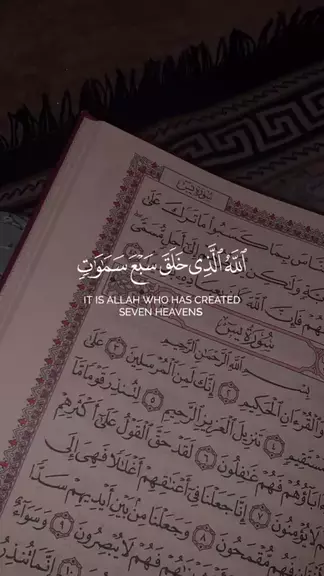 سُورَةُ يسٓ
بِمَا كَسَبُوا۟ مَا تَرَكَ عَلَىٰ
ٱللَّهُ ٱلَّذِى خَلَقَ سَبْعَ سَمَٰوَٰتٍ
IT IS ALLAH WHO HAS CREATED
SEVEN HEAVENS
سُورَةُ يسٓ
بِسْمِ ٱللَّهِ ٱلرَّحْمَٰنِ ٱلرَّحِيمِ
وَٱلْقُرْءَانِ ٱلْحَكِيمِ ٢ إِنَّكَ لَمِنَ ٱلْمُرْسَلِينَ ٣ عَلَىٰ
مُّسْتَقِيمٍ ٤ تَنزِيلَ ٱلْعَزِيزِ ٱلرَّحِيمِ ٥ لِتُنذِرَ قَوْمًا مَّآ
ءَابَآؤُهُمْ فَهُمْ غَٰفِلُونَ ٦ لَقَدْ حَقَّ ٱلْقَوْلُ عَلَىٰٓ أَكْثَرِهِمْ
لَا يُؤْمِنُونَ ٧ إِنَّا جَعَلْنَا فِىٓ أَعْنَٰقِهِمْ أَغْلَٰلًا فَهِىَ إِلَى
فَهُم مُّقْمَحُونَ ٨ وَجَعَلْنَا مِنۢ بَيْنِ أَيْدِيهِمْ سَدًّا
فَهُمْ لَا يُبْصِرُونَ ٩ وَسَوَآءٌ
١٠ إِنَّمَا تُنذِرُ